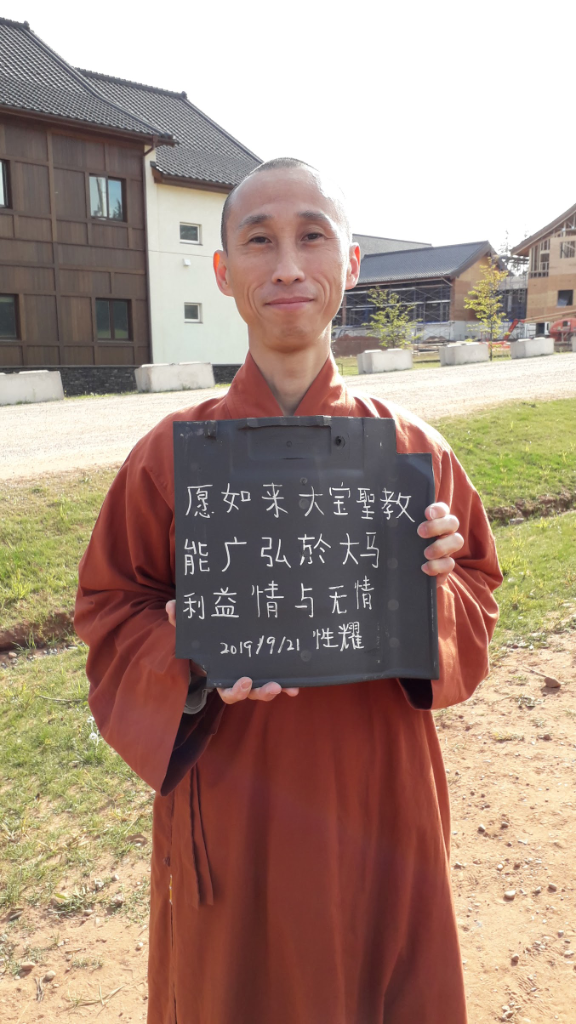 愿如来大宝聖教
能广弘於大马
利益情与无情
2019/9/21 性耀